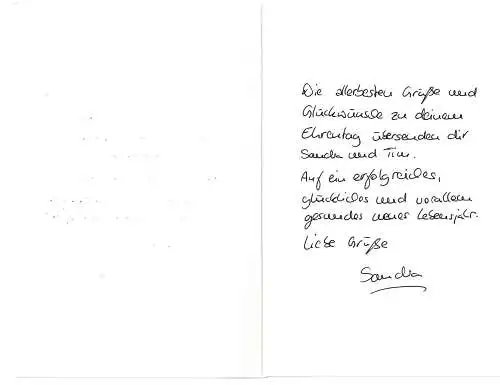 Die allerbesten Grüße und
Glückwünsche zu deinem
Ehrentag übersenden dir
Sandra und Tim.
Auf ein erfolgreiches,
glückliches und vorallem
gesundes neues Lebensjahr.
Liebe Grüße
Sandra